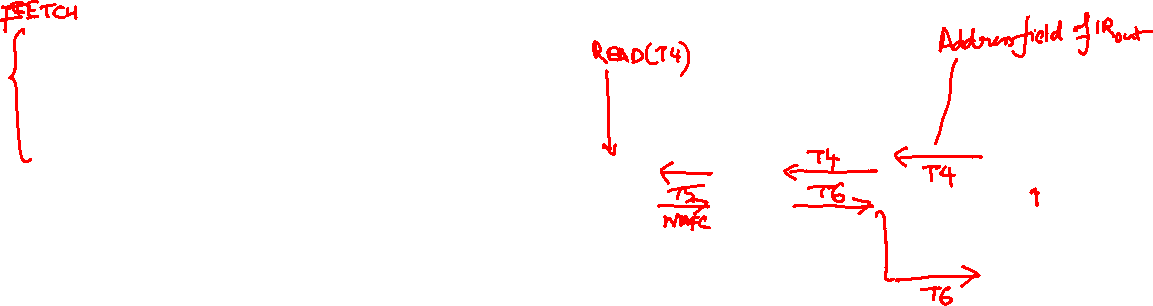 FETCH
READ(T4)
Address field of IRout
T4
T4
T5
T6
WMFC
T6